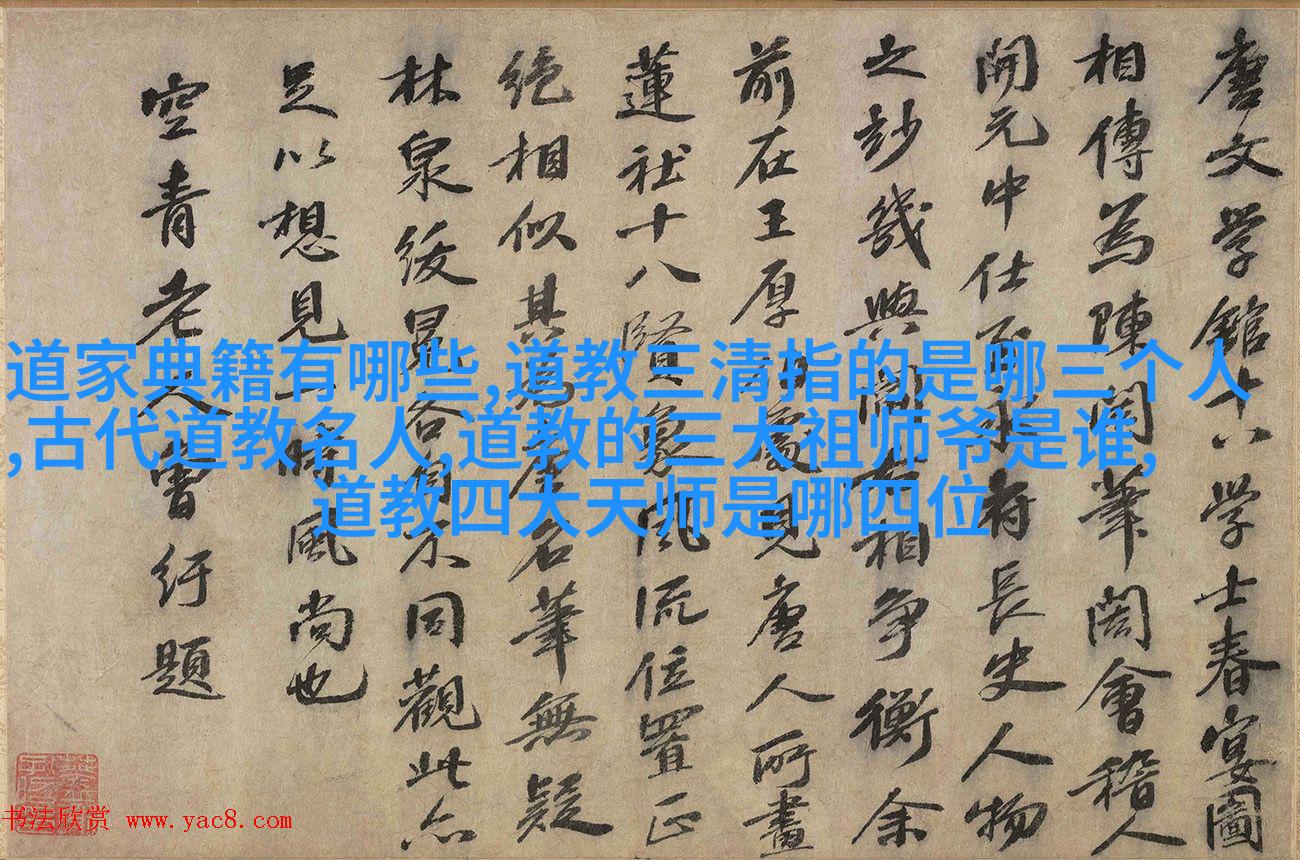 唐文学館十八学士春宴圖
相傳為陳閎筆閎會稽人
開元中仕至府長史人物
之妙幾與閻相爭衡余
前在王厚處見唐人所畫
蓮社十八賢象風流位置正
绝相似其為名筆無疑
林泉绶冕各自不同觀此亦
足以想見一時風尚也
空青老人曾紆題
道家典籍有哪些,道教三清指的是哪三个人
,古代道教名人,道教的三大祖师爷是谁,
道教四大天师是哪四位
书法欣赏 www.yac8.com